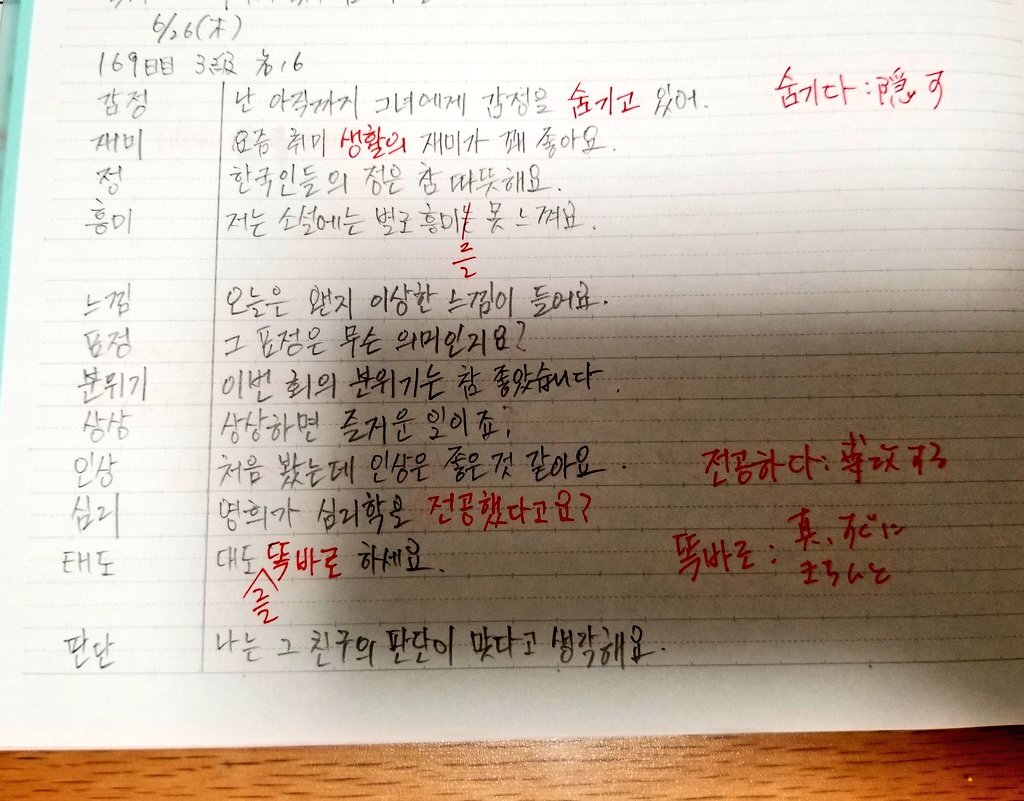 6/26(木)
169日目 3級
감정 난 아직까지 그녀에게 감정을 숨기고 있어. 숨기다:隠す
재미 요즘 취미 생활의 재미가 꽤 좋아요.
정 한국인들의 정은 참 따뜻해요.
흥미 저는 소설에는 별로 흥미 못 느껴요.
를
느낌 오늘은 왠지 이상한 느낌이 들어요.
표정 그 표정은 무슨 의미인지요?
분위기 이번 회의 분위기는 참 좋았습니다.
상상 상상하면 즐거운 일이죠;
인상 처음 봤는데 인상은 좋은것 같아요. 전공하다:専攻する
심리 영희가 심리학을 전공했다고요?
태도 대도 똑바로 하세요. 똑바로: 真っすぐに
를 きちんと
판단 나는 그 친구의 판단이 맞다고 생각해요.